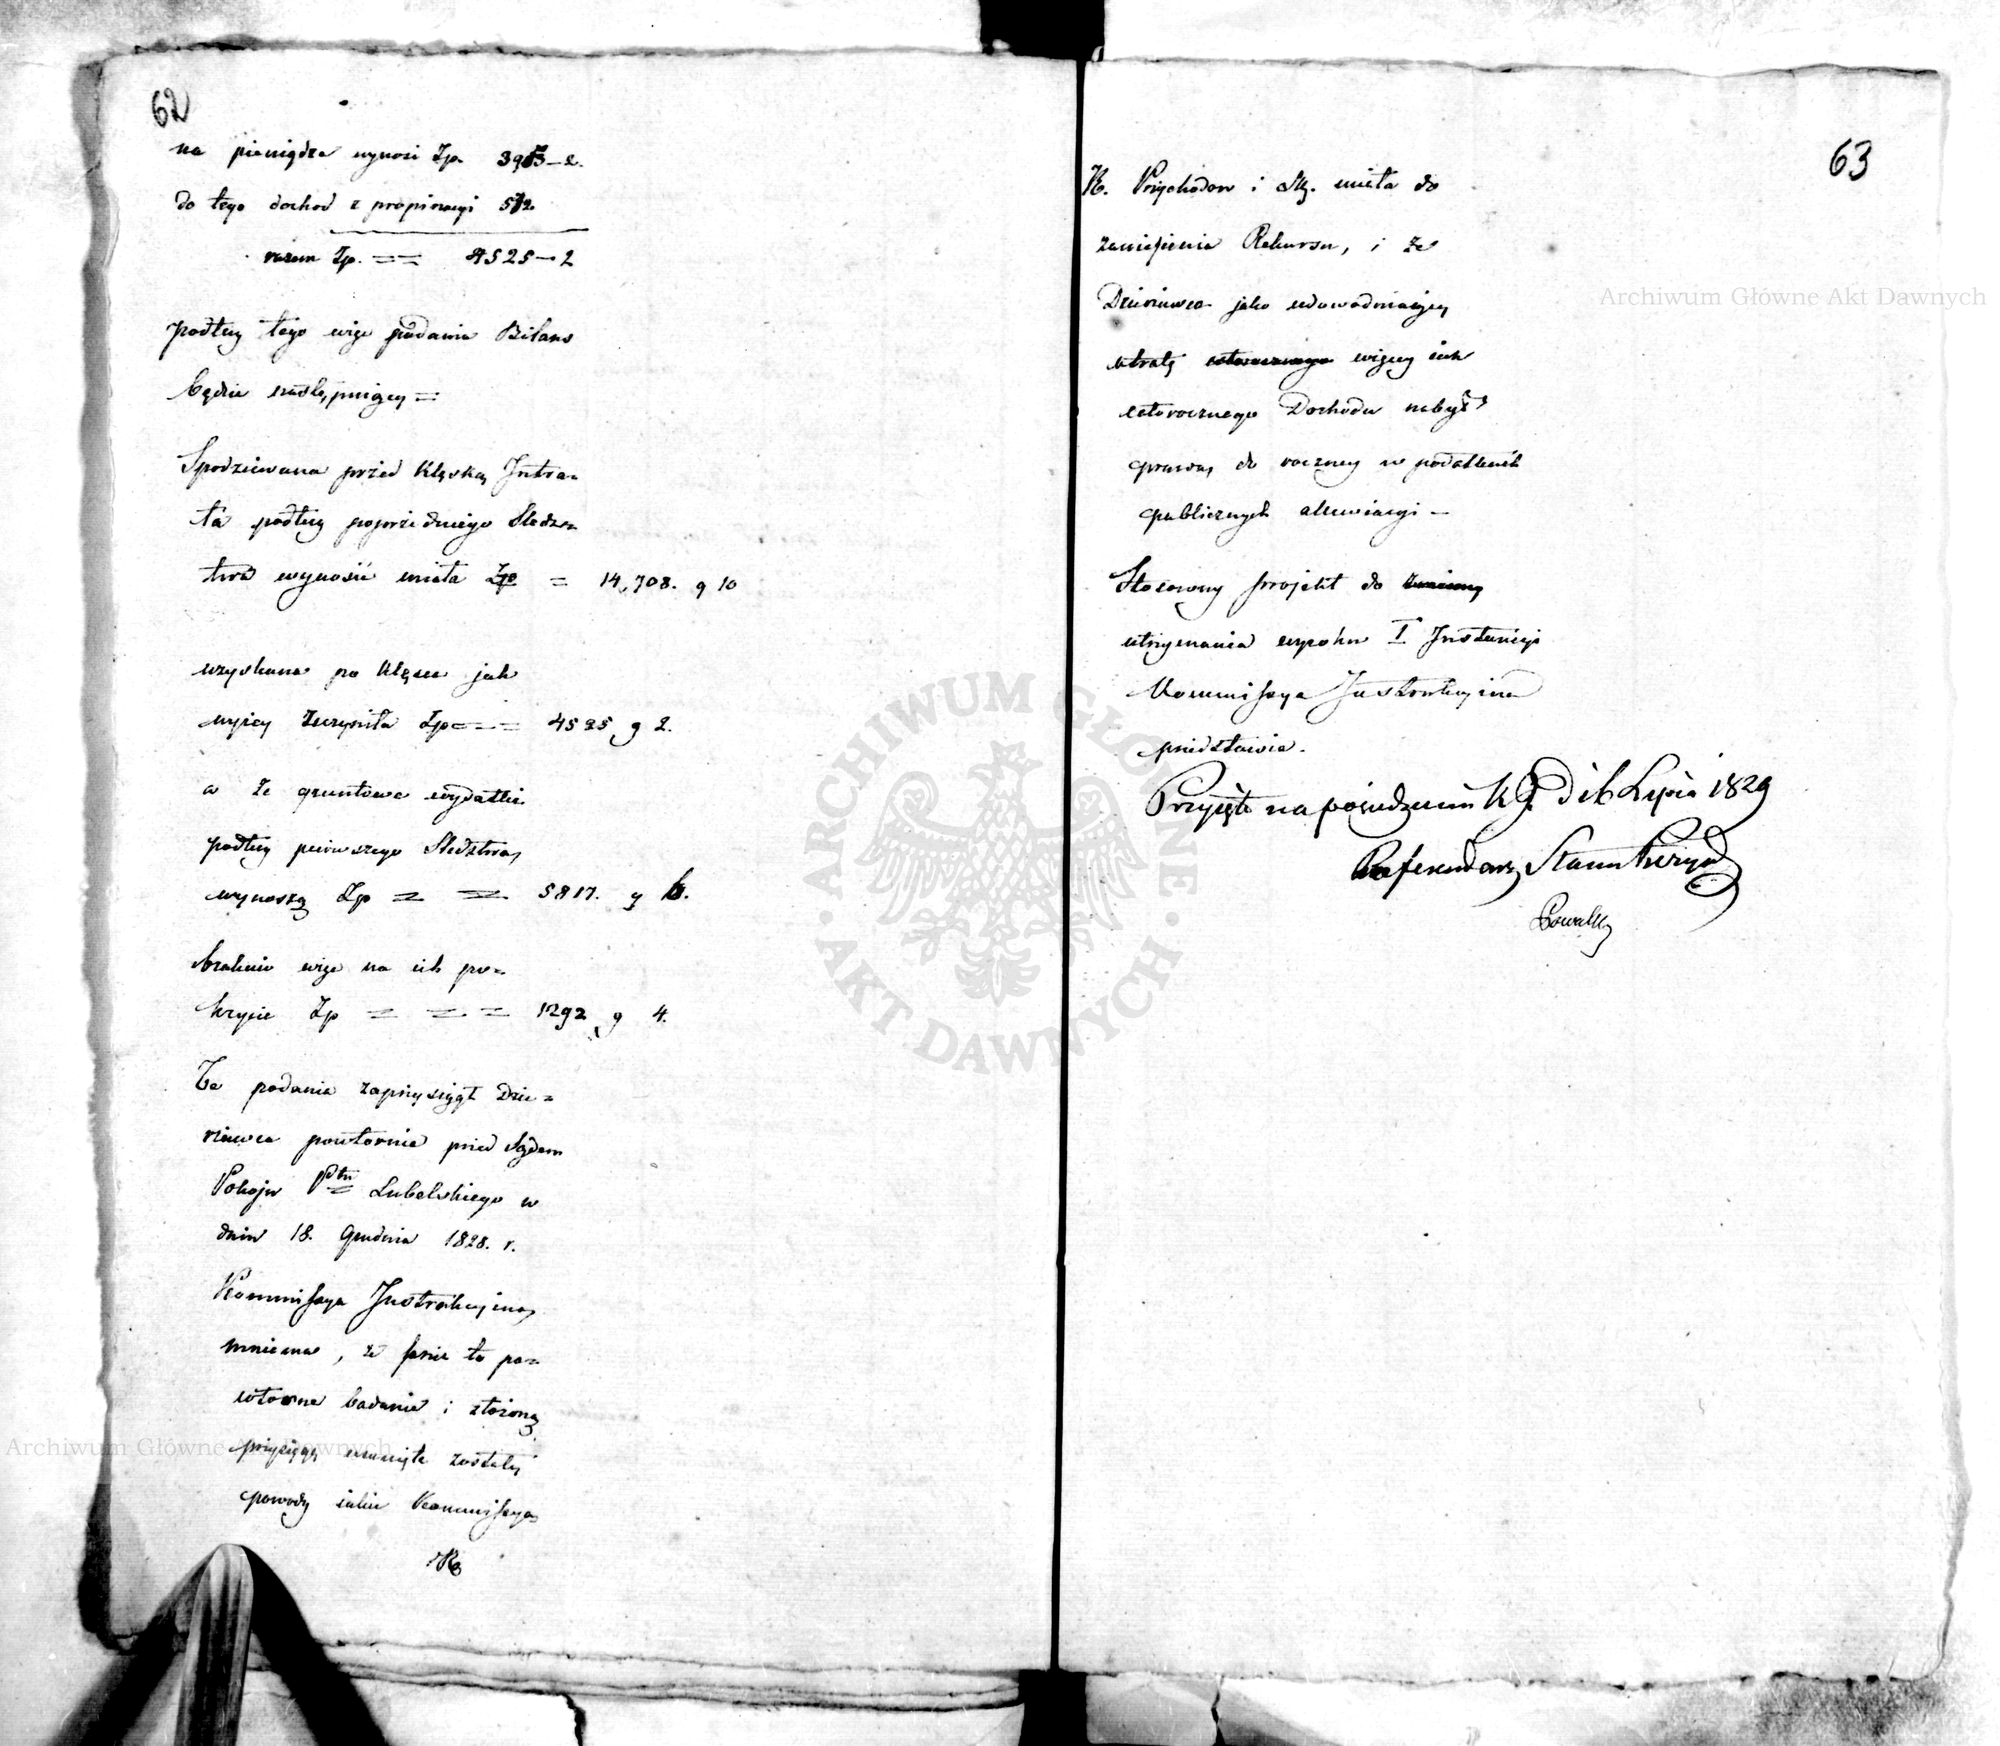 62
na pieniądze wynosi Zp. 3953 – 2.
do tego dochod z propinacyi 572
razem Zp. == 4525 – 2
podług tego więc podania Bilans
będzie następuiący =
Spodziewana przed klęską Intra=
ta podług poprzedniego Sledz=
twa wynosić miała Zp = 14,708. g 10
uzyskana po klęsce jak
wyżey uczyniła Zp = = = 4525 g 2.
a że gruntowe wydatki
podług pierwszego Sledztwa
wynoszą Zp = = 5817. g 6.
brakuie więc na ich po=
krycie Zp = = = 1292 g 4.
Te podania zaprzysiągł Dzie=
rżawca powtornie przed Sądem
Pokoju Ptu Lubelskiego w
dniu 18. Grudnia 1828. r.
Kommissya Instrukcyina
mniema, że przez to po=
wtorne badanie i złożoną
przysięgę usunięte zostały
powody iakie Kommissya
63
R. Przychodow i Sk. miała do
zaniesienia Rekursu, i że
Dzierżawca jako udowadniaiący
utratę więcey iak
całorocznego Dochodu nabył
prawa do roczney w podatkach
publicznych allewiacyi –
Stosowny projekt do
utrzymania wyroku I Instancyi
Kommissya Instrukcyina
przedstawia.
Przyięte na posiedzeniu K J. d 16 Lipca 1829
Referendarz Stanu
Archiwum Główne Akt Dawnych
Archiwum Główne Akt Dawnych
ARCHIWUM GŁÓWNE · AKT DAWNYCH ·